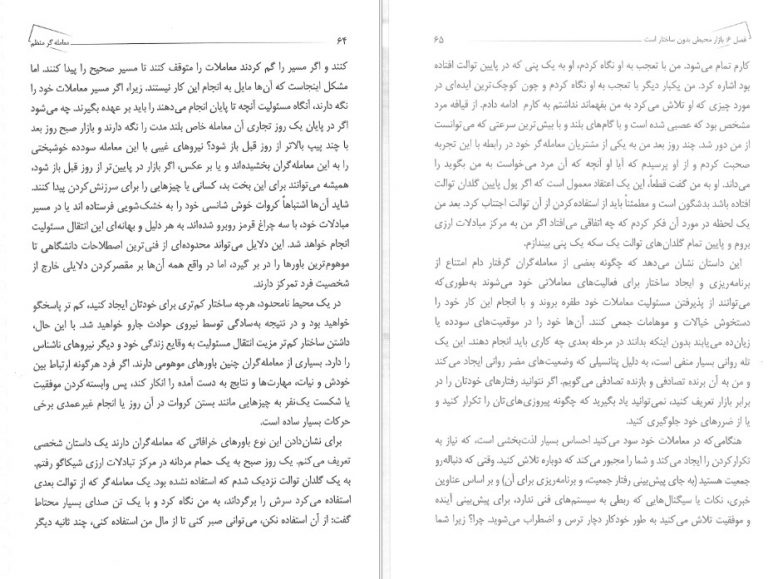 فصل ۶: بازار محیطی بدون ساختار است
۶۵
کارم تمام می‌شود. من با تعجب به او نگاه کردم، او به یک پنی که در پایین توالت افتاده
بود اشاره کرد. من یکبار دیگر با تعجب به او نگاه کردم و چون کوچک‌ترین ایده‌ای در
مورد چیزی که او تلاش می‌کرد به من بفهماند نداشتم به کارم ادامه دادم. از قیافه مرد
مشخص بود که عصبی شده است و با گام‌های بلند و با بیش‌ترین سرعتی که می‌توانست
از من دور شد. چند روز بعد من به یکی از مشتریان معامله‌گر خود در رابطه با این تجربه
صحبت کردم و از او پرسیدم که آیا او آنچه که آن مرد می‌خواست به من بگوید را
می‌داند. او به من گفت قطعاً، این یک اعتقاد معمول است که اگر پول پایین گلدان توالت
افتاده باشد بدشگون است و مطمئناً باید از استفاده‌کردن از آن توالت اجتناب کرد. بعد من
یک لحظه در مورد آن فکر کردم که چه اتفاقی می‌افتاد اگر من به مرکز مبادلات ارزی
بروم و پایین تمام گلدان‌های توالت یک سکه یک پنی بیندازم.
این داستان نشان می‌دهد که چگونه بعضی از معامله‌گران گرفتار دام امتناع از
برنامه‌ریزی و ایجاد ساختار برای فعالیت‌های معاملاتی خود می‌شوند به‌طوری‌که
می‌توانند از پذیرفتن مسئولیت معاملات خود طفره بروند و با انجام این کار خود را
دستخوش خیالات و موهامات جمعی کنند. آن‌ها خود را در موقعیت‌های سودده یا
زیان‌ده می‌یابند بدون اینکه بدانند در مرحله بعدی چه کاری باید انجام دهند. این یک
تله روانی بسیار منفی است، به دلیل پتانسیلی که وضعیت‌های مضر روانی ایجاد می‌کند
و من به آن برنده تصادفی و بازنده تصادفی می‌گویم. اگر نتوانید رفتارهای خودتان را در
برابر بازار تعریف کنید، نمی‌توانید یاد بگیرید که چگونه پیروزی‌های‌تان را تکرار کنید و
یا از ضررهای خود جلوگیری کنید.
هنگامی‌که در معاملات خود سود می‌کنید احساس بسیار لذت‌بخشی است، که نیاز به
تکرارکردن را ایجاد می‌کند و شما را مجبور می‌کند که دوباره تلاش کنید. وقتی که دنباله‌رو
جمعیت هستید (به جای پیش‌بینی رفتار جمعیت، و برنامه‌ریزی برای آن) و بر اساس عناوین
خبری، نکات یا سیگنال‌هایی که ربطی به سیستم‌های فنی ندارد، برای پیش‌بینی آینده
و موفقیت تلاش می‌کنید به طور خودکار دچار ترس و اضطراب می‌شوید. چرا؟ زیرا شما
۶۴
معامله‌گر منظم
کنند و اگر مسیر را گم کردند معاملات را متوقف کنند تا مسیر صحیح را پیدا کنند. اما
مشکل اینجاست که آن‌ها مایل به انجام این کار نیستند. زیرا، اگر مسیر معاملات خود را
نگه دارند، آنگاه مسئولیت آنچه تا پایان انجام می‌دهند را باید بر عهده بگیرند. چه می‌شود
اگر در پایان یک روز تجاری آن معامله خاص بلند مدت را نگه دارند و بازار صبح روز بعد
با چند پیپ بالاتر از روز قبل باز شود؟ نیروهای غیبی با این معامله سودده خوشبختی
را به این معامله‌گران بخشیده‌اند و یا بر عکس، اگر بازار در پایین‌تر از روز قبل باز شود،
همیشه می‌توانند برای این بخت بد، کسانی یا چیزهایی را برای سرزنش‌کردن پیدا کنند.
شاید آن‌ها اشتباهاً کروات خوش شانسی خود را به خشک‌شویی فرستاده اند یا در مسیر
مبادلات خود، با سه چراغ قرمز روبرو شده‌اند. به هر دلیل و بهانه‌ای این انتقال مسئولیت
انجام خواهد شد. این دلایل می‌تواند محدوده‌ای از فنی‌ترین اصطلاحات دانشگاهی تا
موهوم‌ترین باورها را در بر گیرد، اما در واقع همه آن‌ها بر مقصرکردن دلایلی خارج از
شخصیت فرد تمرکز دارند.
در یک محیط نامحدود، هرچه ساختار کم‌تری برای خودتان ایجاد کنید، کم تر پاسخگو
خواهید بود و در نتیجه به‌سادگی توسط نیروی حوادث جارو خواهید شد. با این حال،
داشتن ساختار کم‌تر مزیت انتقال مسئولیت به وقایع زندگی خود و دیگر نیروهای ناشناس
را دارد. بسیاری از معامله‌گران چنین باورهای موهومی دارند. اگر فرد هرگونه ارتباط بین
خودش و نیات، مهارت‌ها و نتایج به دست آمده را انکار کند، پس وابسته‌کردن موفقیت
یا شکست یک‌نفر به چیزهایی مانند بستن کروات در آن روز یا انجام غیرعمدی برخی
حرکات بسیار ساده است.
برای نشان‌دادن این نوع باورهای خرافاتی که معامله‌گران دارند یک داستان شخصی
تعریف می‌کنم. یک روز صبح به یک حمام مردانه در مرکز تبادلات ارزی شیکاگو رفتم.
به یک گلدان توالت نزدیک شدم که استفاده نشده بود. یک معامله‌گر که از توالت بعدی
استفاده می‌کرد سرش را برگرداند، به من نگاه کرد و با یک تن صدای بسیار محتاط
گفت: از آن استفاده نکن، می‌توانی صبر کنی تا از مال من استفاده کنی، چند ثانیه دیگر